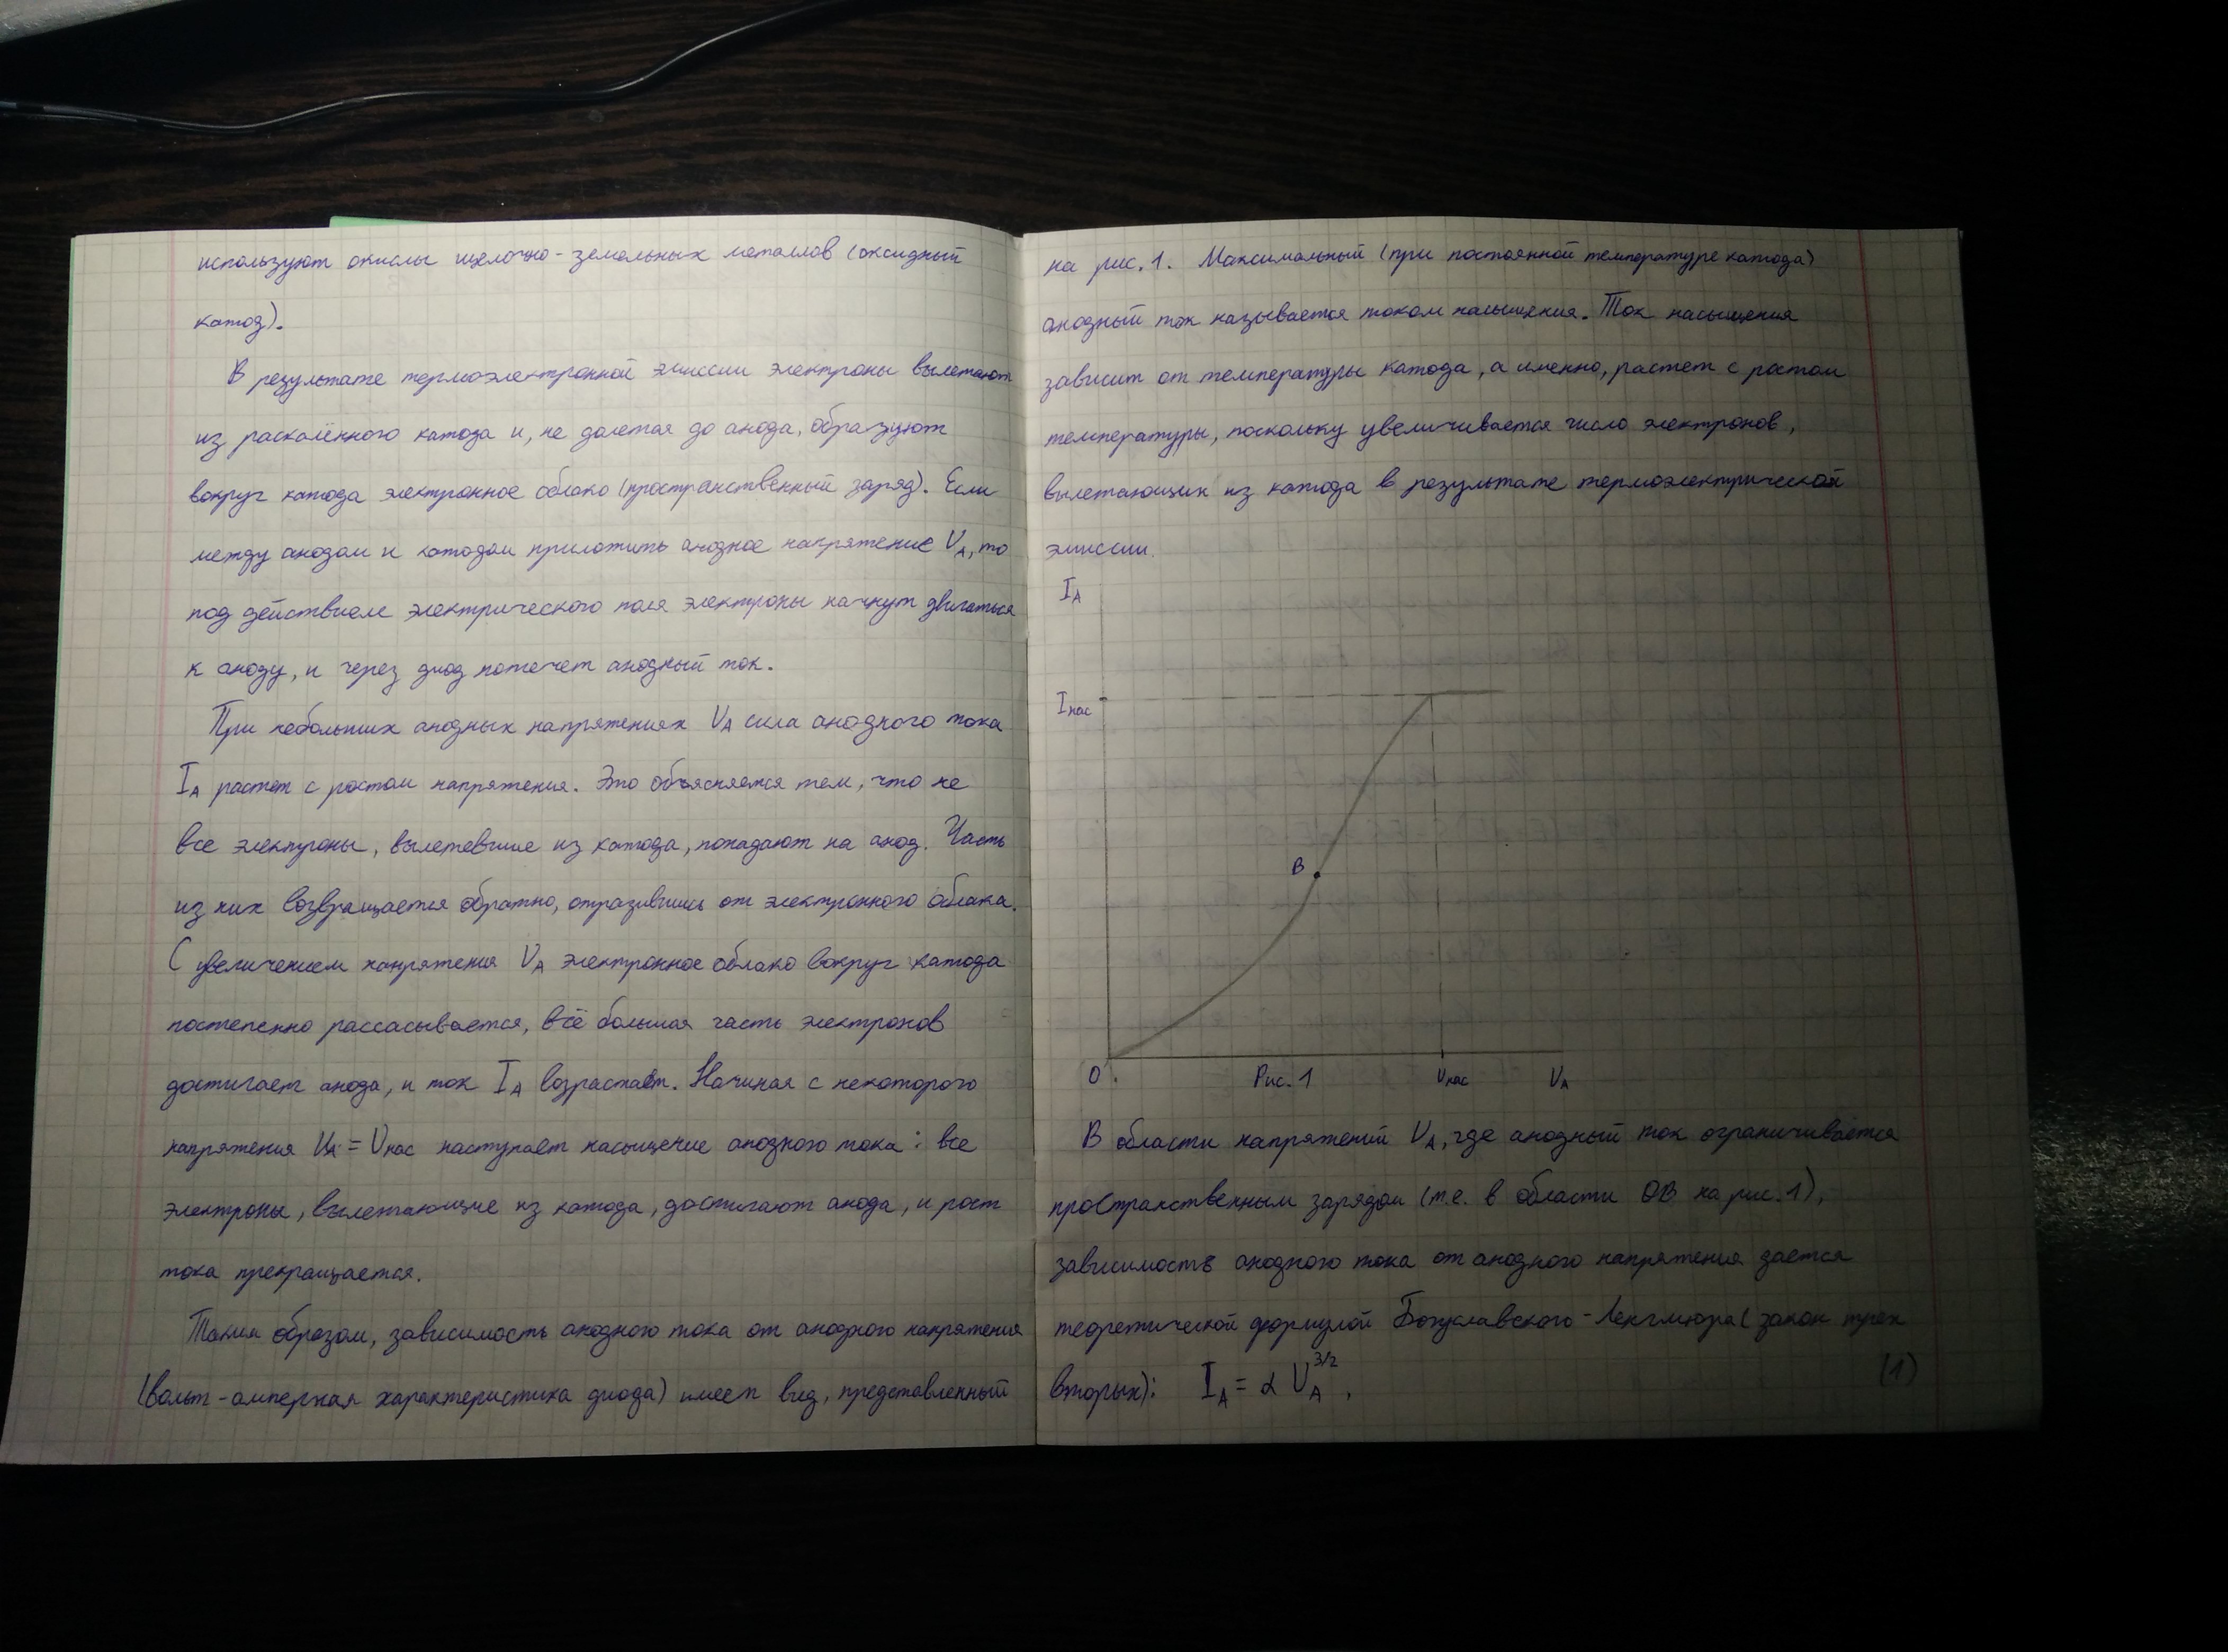 используют окислы щелочно-земельных металлов (оксидный
катод).
В результате термоэлектронной эмиссии электроны вылетают
из раскалённого катода и, не долетая до анода, образуют
вокруг катода электронное облако (пространственный заряд). Если
между анодом и катодом приложить анодное напряжение U_A, то
под действием электрического поля электроны начнут двигаться
к аноду, и через диод потечет анодный ток.
При небольших анодных напряжениях U_A сила анодного тока
I_A растет с ростом напряжения. Это объясняется тем, что не
все электроны, вылетевшие из катода, попадают на анод. Часть
из них возвращается обратно, отразившись от электронного облака.
С увеличением напряжения U_A электронное облако вокруг катода
постепенно рассасывается, всё большая часть электронов
достигает анода, и ток I_A возрастает. Начиная с некоторого
напряжения U_A = U_нас наступает насыщение анодного тока: все
электроны, вылетающие из катода, достигают анода, и рост
тока прекращается.
Таким образом, зависимость анодного тока от анодного напряжения
(вольт-амперная характеристика диода) имеет вид, представленный
на рис. 1. Максимальный (при постоянной температуре катода)
анодный ток называется током насыщения. Ток насыщения
зависит от температуры катода, а именно, растет с ростом
температуры, поскольку увеличивается число электронов,
вылетающих из катода в результате термоэлектрической
эмиссии.
I_A
I_нас
B
O Рис. 1 U_нас U_A
В области напряжений U_A, где анодный ток ограничивается
пространственным зарядом (т.е. в области OB на рис. 1),
зависимость анодного тока от анодного напряжения дается
теоретической формулой Богуславского-Ленгмюра (закон трех
вторых): I_A = α U_A^{3/2}, (1)